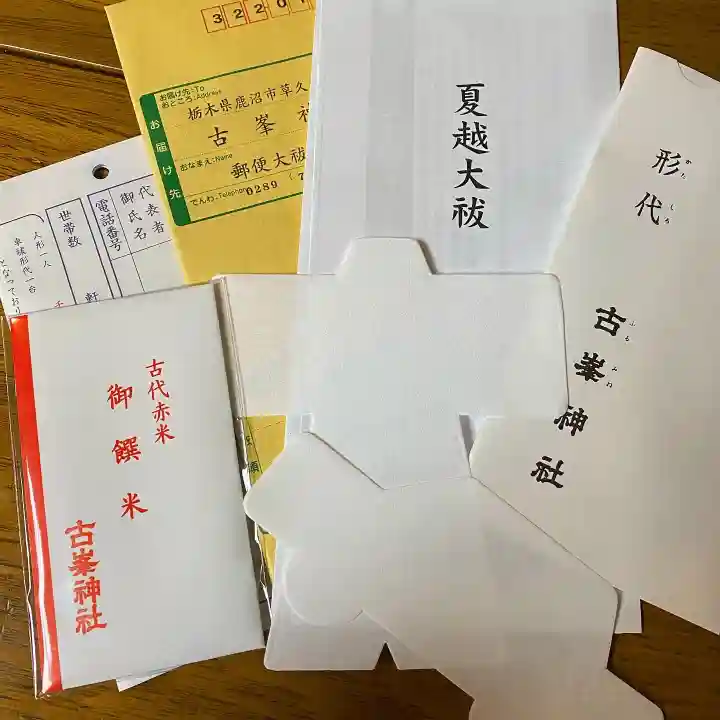 3220
お届け先:To
おところ:Address
栃木県鹿沼市草久
古峯
おなまえ:Name
郵便大祓
でんわ:Telephon
0289
お届け先
夏越大祓
形代
かたしろ
古峯神社
ふるみね
代表者
御氏名
電話番号
世帯数
軒
人形一人
車祓形代一台
となっており
古代赤米
御饌米
古峯神社